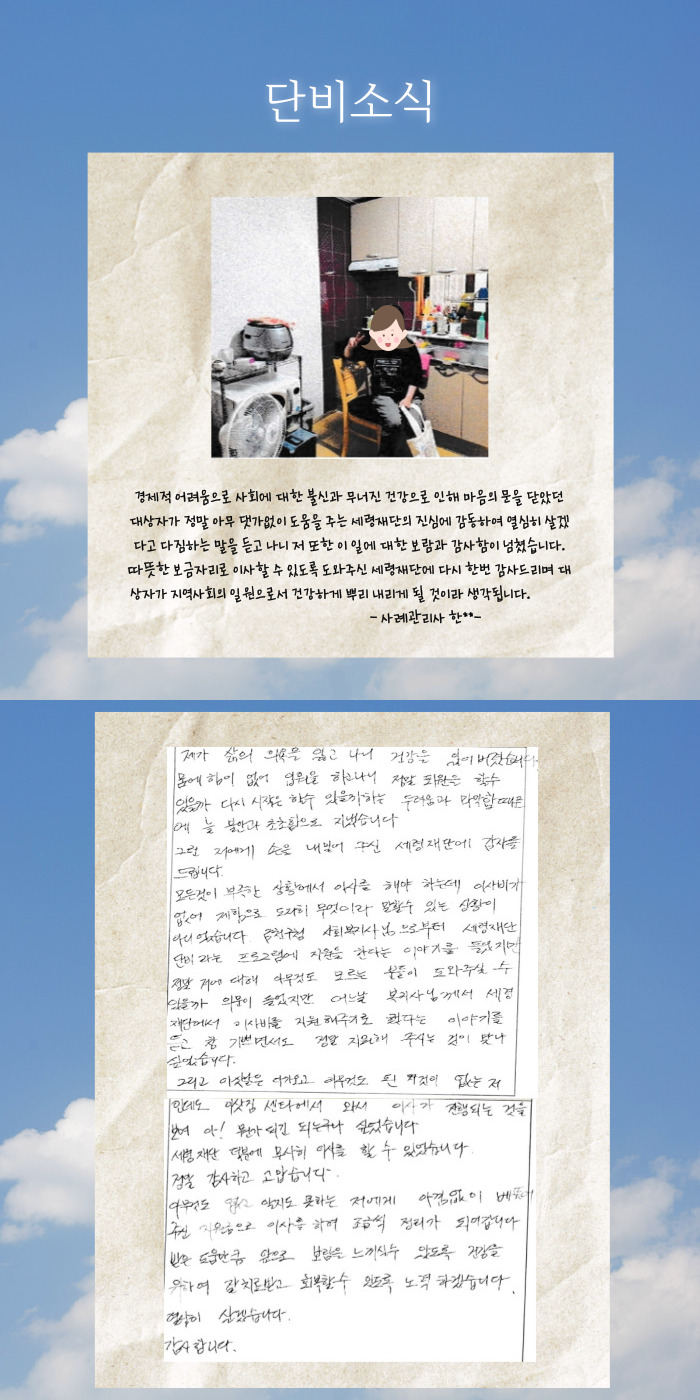 단비소식
경제적 어려움으로 사회에 대한 불신과 무너진 건강으로 인해 마음의 문을 닫았던
대상자가 정말 아무 댓가없이 도움을 주는 세령재단의 진심에 감동하여 열심히 살겠
다고 다짐하는 말을 듣고 나니 저 또한 이 일에 대한 보람과 감사함이 넘쳤습니다.
따뜻한 보금자리로 이사할 수 있도록 도와주신 세령재단에 다시 한번 감사드리며 대
상자가 지역사회의 일원으로서 건강하게 뿌리 내리게 될 것이라 생각됩니다.
- 사례관리사 한**-
제가 삶의 의욕을 잃고 나니 건강을 잃어버렸습니다
몸에 힘이 없어 입원을 하고나니 정말 퇴원은 할수
있을까 다시 시작은 할수 있을까하는 두려움과 막막함 때문
에 늘 불안과 초초함으로 지냈습니다
그런 저에게 손을 내밀어 주신 세령재단에 감사를
드립니다.
모든것이 부족한 상황에서 이사를 해야 하는데 이사비가
없어 제힘으로 도저히 무엇이라 말할수 있는 상황이
아니었습니다. 금천구청 사회복지사님으로부터 세령재단
단비라는 프로그램에 지원을 한다는 이야기를 들었지만
정말 저에 대해 아무것도 모르는 분들이 도와주실 수
있을까 의문이 들었지만 어느날 복지사님께서 세령
재단에서 이사비를 지원해주기로 했다는 이야기를
듣고 참 기쁘면서도 정말 지원해 주시는 것이 맞나
싶었습니다.
그리고 이삿날은 다가오고 아무것도 된 것이 없는 저
인데도 이삿짐 센타에서 와서 이사가 진행되는 것을
보며 아! 뭔가 되긴 되는구나 싶었습니다
세령재단 덕분에 무사히 이사를 할 수 있었습니다.
정말 감사하고 고맙습니다.
아무것도 없고 알지도 못하는 저에게 아낌없이 베풀어
주신 지원금으로 이사를 하여 조금씩 정리가 되어갑니다
받은 도움만큼 앞으로 보람을 느끼실수 있도록 건강을
위하여 잘 치료받고 회복할수 있도록 노력 하겠습니다.
열심히 살겠습니다.
감사합니다.